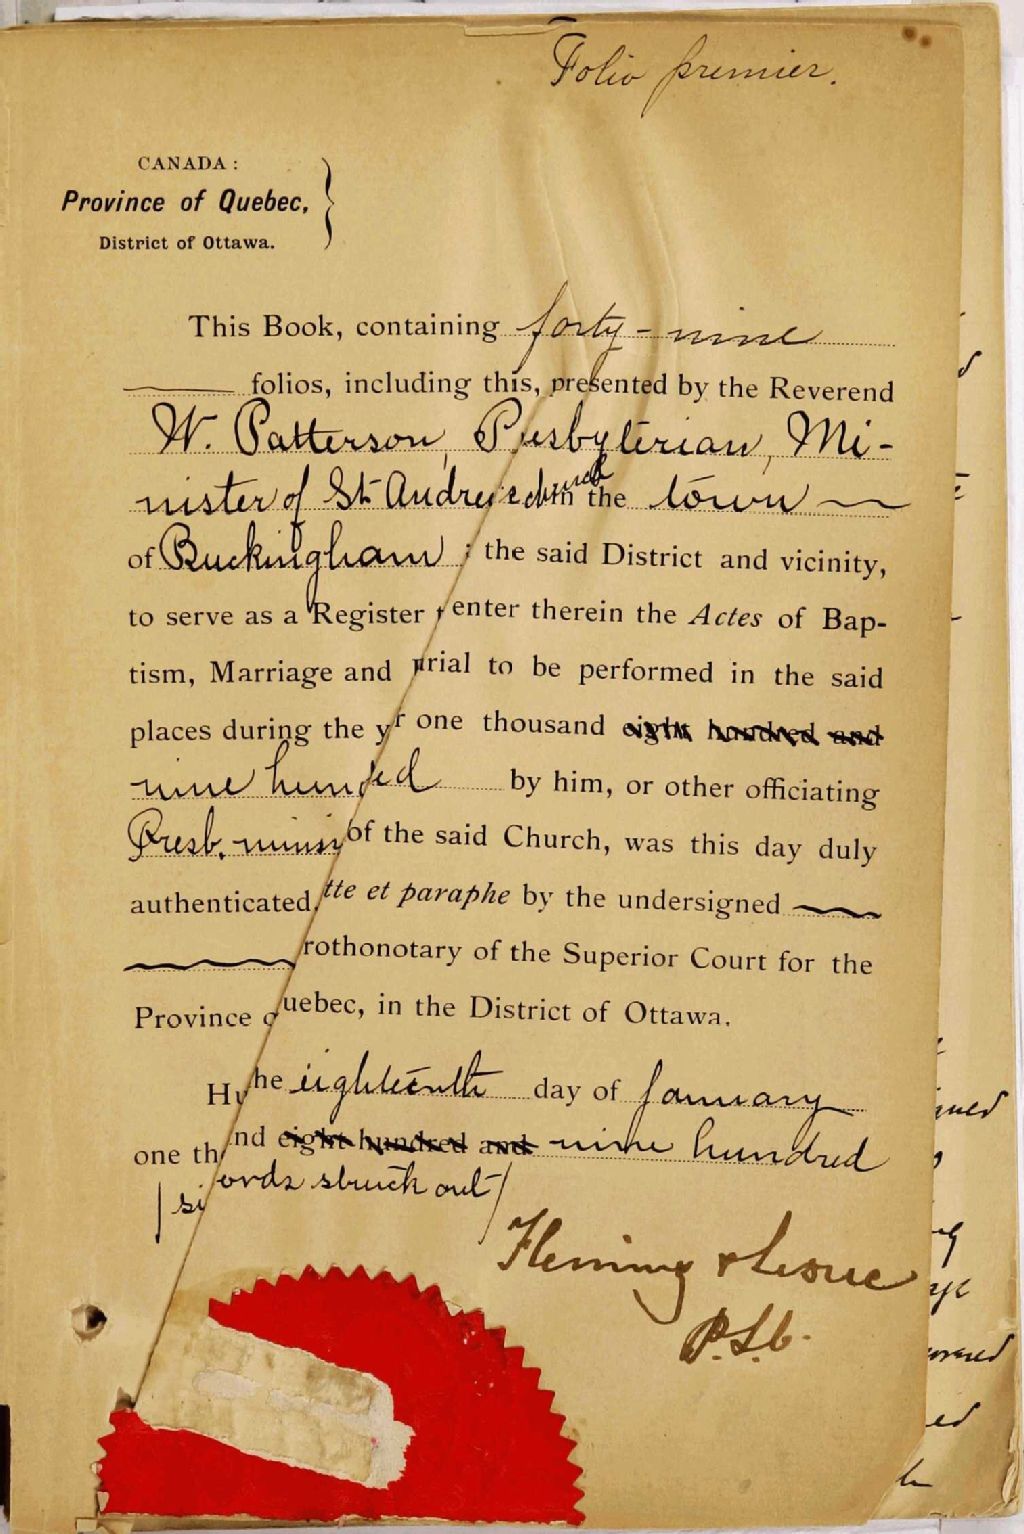 Folio premier.
CANADA:
Province of Quebec,
District of Ottawa.
This Book, containing forty-nine
folios, including this, presented by the Reverend
W. Patterson, Presbyterian, Mi-
nister of St Andrew's church in the town
of Buckingham ; the said District and vicinity,
to serve as a Register enter therein the Actes of Bap-
tism, Marriage and urial to be performed in the said
places during the y r one thousand eight hundred and
nine hundred by him, or other officiating
Presb. minis of the said Church, was this day duly
authenticated. tte et paraphe by the undersigned
rothonotary of the Superior Court for the
Province o uebec, in the District of Ottawa.
Hu he eighteenth day of January
one th nd eight hundred and nine hundred
si ords struck out
Fleming &
P.S.C.